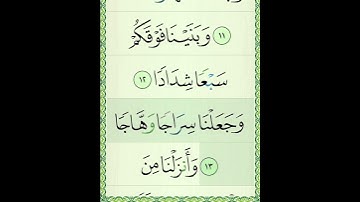 ١١ وَبَنَيْنَا فَوْقَكُمْ
سَبْعًا شِدَادًا ١٢
وَجَعَلْنَا سِرَاجًا وَهَّاجًا
١٣ وَأَنزَلْنَا مِنَ